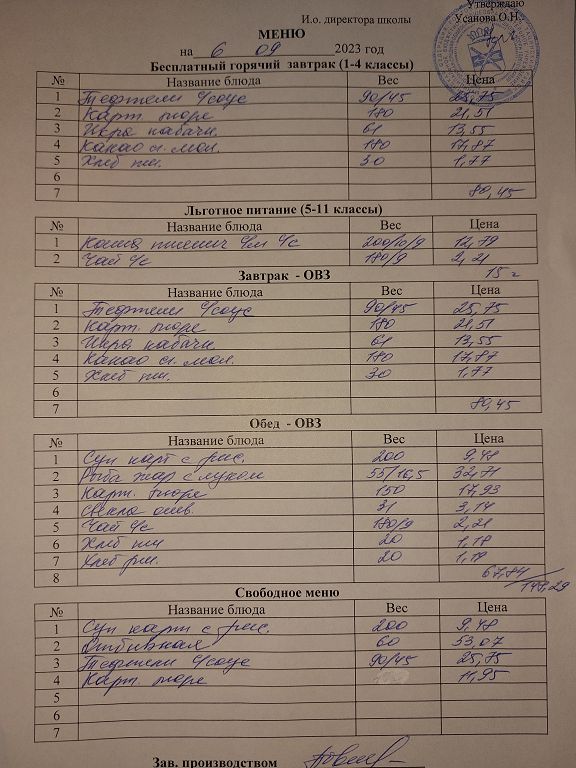 Утверждаю
И.о. директора школы Усанова О.Н.
МЕНЮ
на 6 09 2023 год
Бесплатный горячий завтрак (1-4 классы)
№ Название блюда Вес Цена
1 Тефтели ч/соус 90/45 25,75
2 Карт. пюре 180 21,51
3 Икра кабачк. 61 13,55
4 Какао с мол. 180 17,87
5 Хлеб пш. 30 1,77
6
7 80,45
Льготное питание (5-11 классы)
№ Название блюда Вес Цена
1 Каша пшенич ч/м ч/с 200/10/9 12,79
2 Чай ч/с 180/9 2,21
15
Завтрак - ОВЗ
№ Название блюда Вес Цена
1 Тефтели ч/соус 90/45 25,75
2 Карт. пюре 180 21,51
3 Икра кабачк. 61 13,55
4 Какао с мол. 180 17,87
5 Хлеб пш. 30 1,77
6
7 80,45
Обед - ОВЗ
№ Название блюда Вес Цена
1 Суп карт с рис. 200 9,48
2 Рыба жар с луком 55/16,5 32,71
3 Карт. пюре 150 17,93
4 Свекла 31 3,14
5 Чай ч/с 180/9 2,21
6 Хлеб пш 20 1,18
7 Хлеб рж. 20 1,19
8 67,84/148,29
Свободное меню
№ Название блюда Вес Цена
1 Суп карт с рис. 200 9,48
2 Отбивная 60 53,07
3 Тефтели ч/соус 90/45 25,75
4 Карт. пюре 11,95
5
6
7
Зав. производством